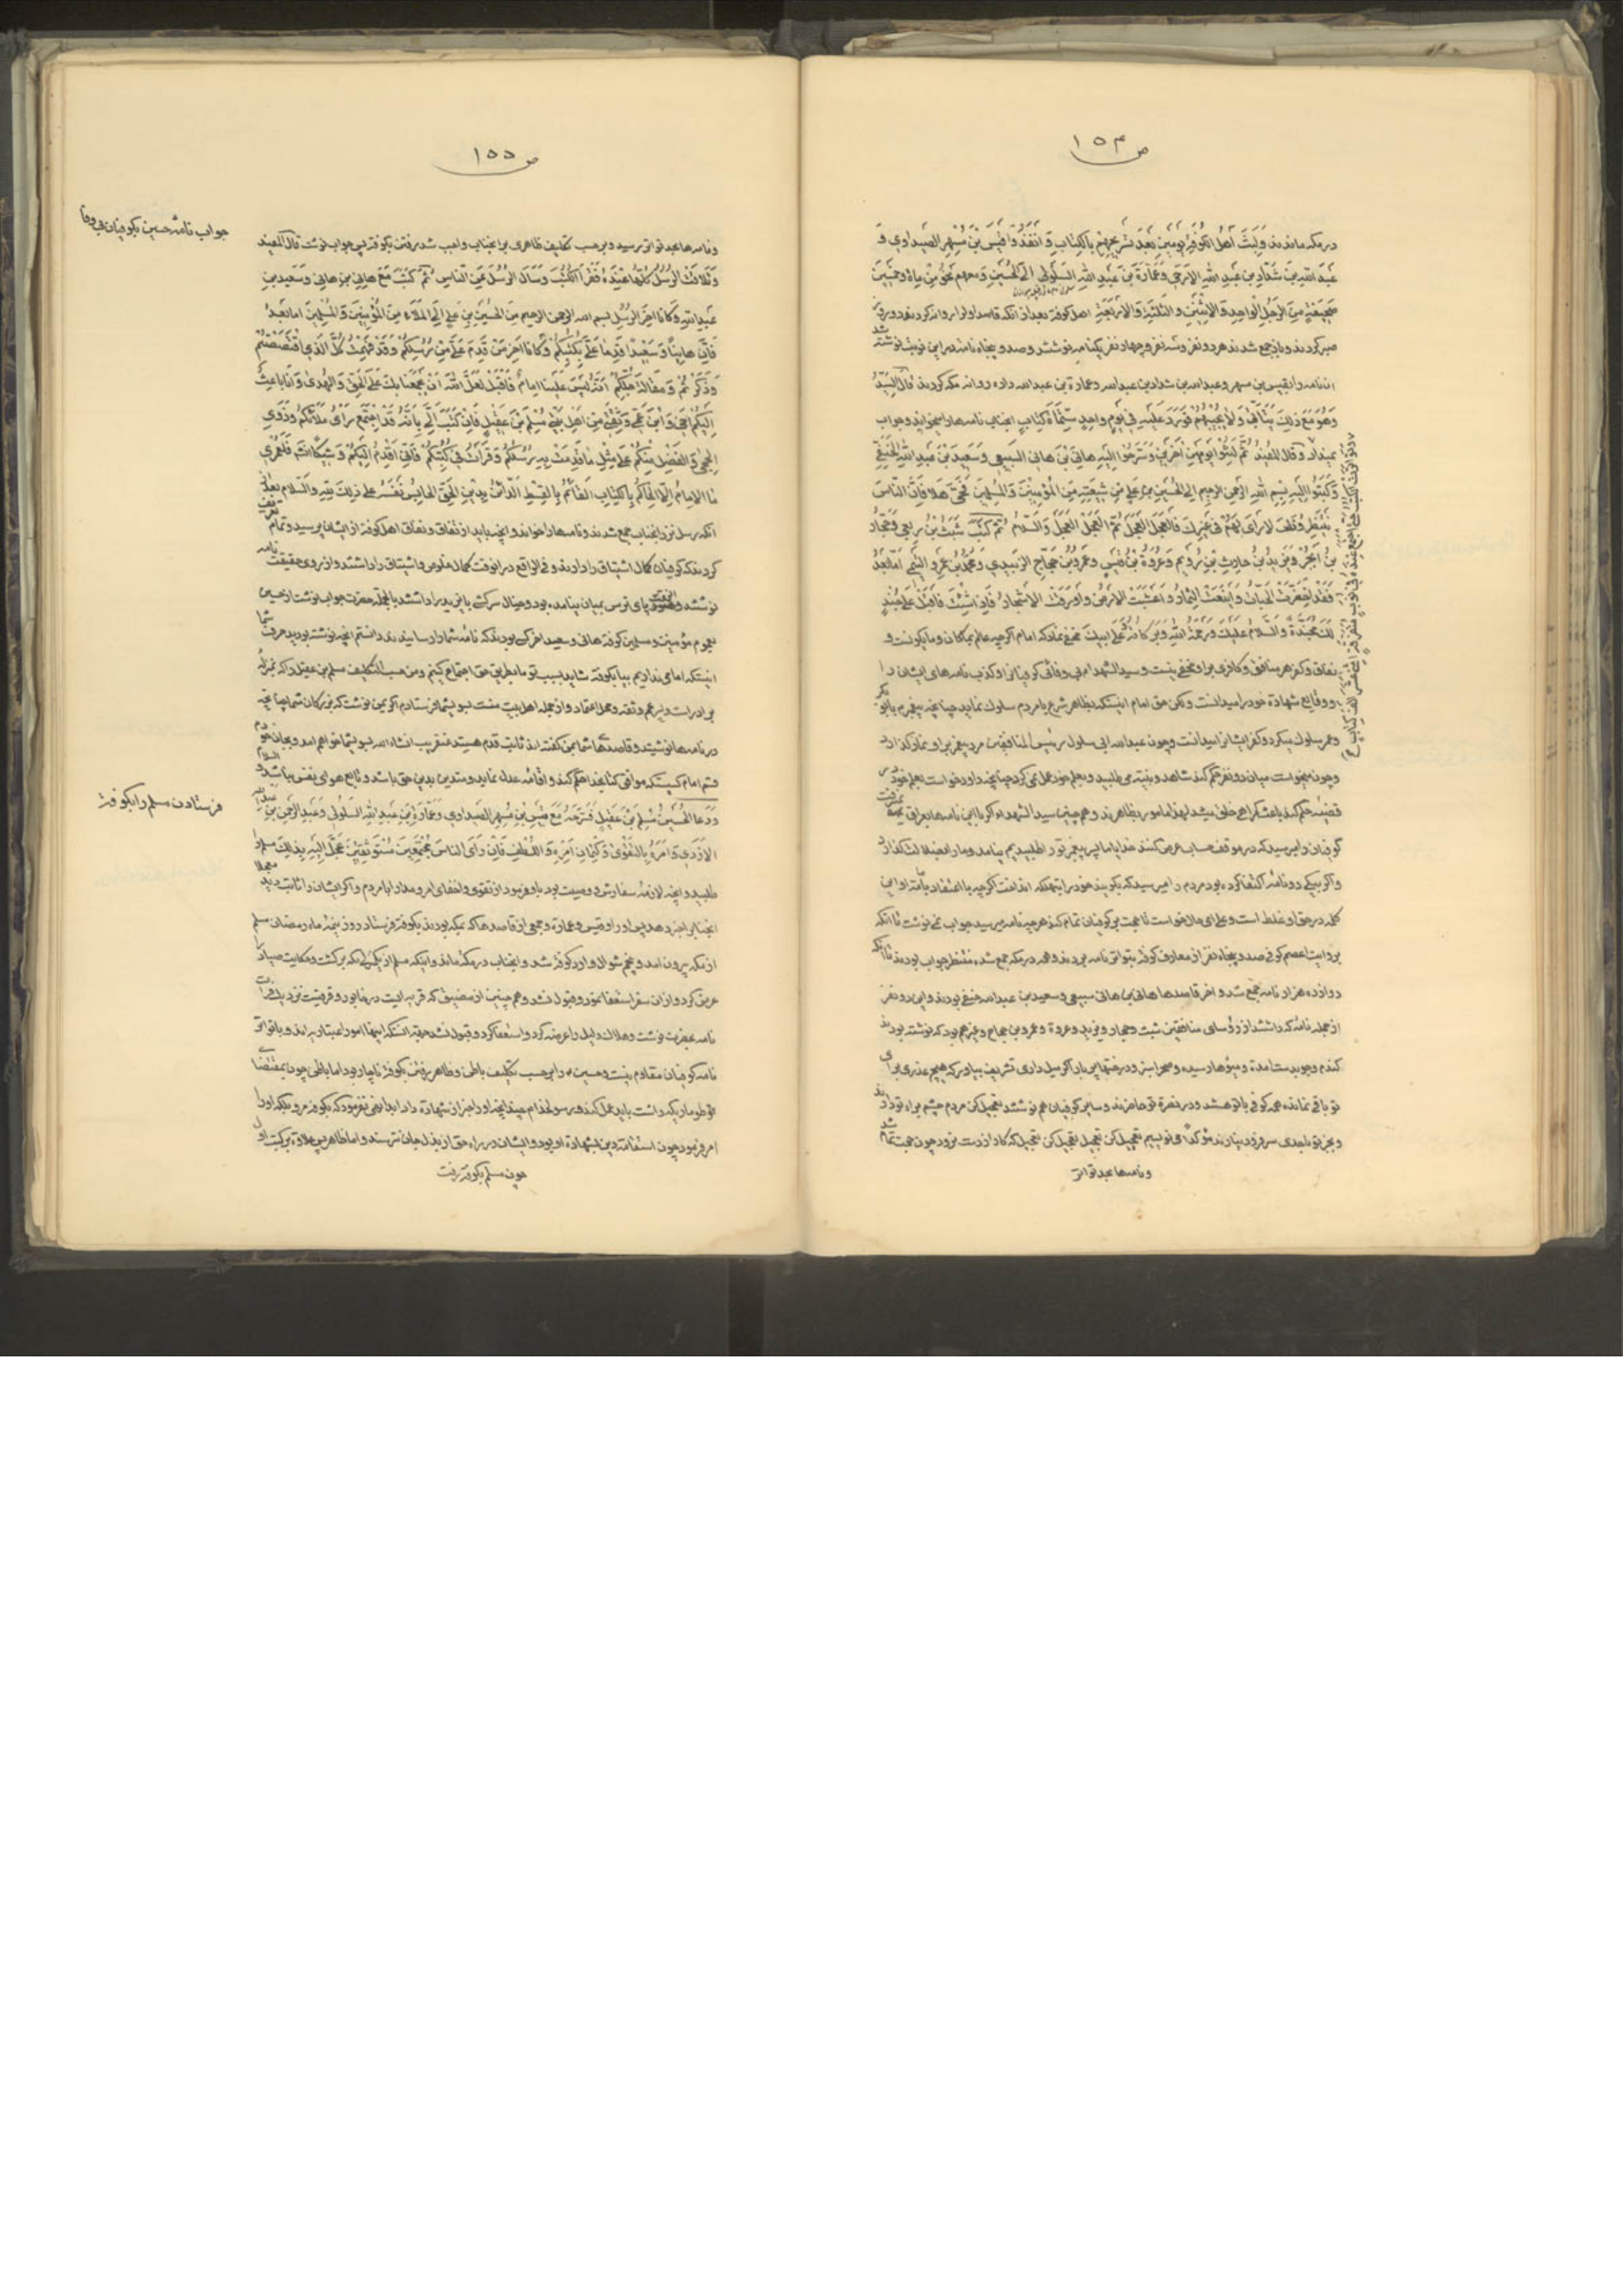 ص ۱۵۴
در مکه ماندند وَلَبِثَ اَهْلُ الْكُوفَةِ يَوْمَيْنِ بَعْدَ تَسْرِيحِهِمْ بِالْكِتَابِ وَ اَنْفَذُوا قَيْسَ بْنَ مُسْهِرٍ الصَّيْدَاوِيَّ وَ
عَبْدَ اللّٰهِ بْنَ شَدَّادِ بْنِ عَبْدِ اللّٰهِ الْاَرْحَبِي وَ عُمَارَةَ بْنَ عَبْدِ اللّٰهِ السَّلُولِي اِلَى الْحُسَيْنِ وَ مَعَهُمْ نَحْوٌ مِنْ مِائَةٍ وَ خَمْسِينَ
صَحِيفَةً مِنَ الرَّجُلِ الْوَاحِدِ وَ الْاِثْنَيْنِ وَ الثَّلٰثَةِ وَ الْاَرْبَعَةِ اهل کوفه بعد از انکه قاصد اول را روانه کردند دو روز
صبر کردند و باز جمع شدند هر دو نفر و سه نفر و چهار نفر یکنامه نوشتند و صد و پنجاه نامه در این نوبت نوشته شد
ان نامه را بقیس بن مسهر و عبدالله بن شداد بن عبدالله و عمارة بن عبدالله داده روانه مکه کردند قال السَّيِّدُ
وَهُوَ مَعَ ذٰلِكَ يَتَاَنّٰى وَ لَا يُجِيبُهُمْ فَوَرَدَ عَلَيْهِ فِي يَوْمٍ وَاحِدٍ سِتُّمِائَةِ كِتَابٍ انجناب نامه‌ها را میخواند و جواب
نمیداد و قَالَ الْمُفِيدُ ثُمَّ لَبِثُوا يَوْمَيْنِ اٰخَرَيْنِ وَ سَرَّحُوا اِلَيْهِ هَانِيَ بْنَ هَانِي السَّبِيعِي وَ سَعِيدَ بْنَ عَبْدِ اللّٰهِ الْحَنَفِيَّ
وَ كَتَبُوا اِلَيْهِ بِسْمِ اللّٰهِ الرَّحْمٰنِ الرَّحِيمِ اِلَى الْحُسَيْنِ بْنِ عَلِيٍّ مِنْ شِيعَتِهِ مِنَ الْمُؤْمِنِينَ وَ الْمُسْلِمِينَ فَحَيَّ هَلَا فَاِنَّ النَّاسَ
يَنْتَظِرُونَكَ لَا رَاْيَ لَهُمْ فِي غَيْرِكَ فَالْعَجَلَ الْعَجَلَ ثُمَّ الْعَجَلَ الْعَجَلَ وَ السَّلَامُ ثُمَّ كَتَبَ شَبَثُ بْنُ رِبْعِي وَ حَجَّارُ
بْنُ اَبْجُرَ وَ يَزِيدُ بْنُ حَارِثِ بْنِ رُوَيْمٍ وَ عُرْوَةُ بْنُ قَيْسٍ وَ عَمْرُو بْنُ حَجَّاجٍ الزُّبَيْدِي وَ مُحَمَّدُ بْنُ عَمْرٍو التَّيْمِي اَمَّا بَعْدُ
فَقَدِ اخْضَرَّتِ الْجَنَّاتُ وَ اَيْنَعَتِ الثِّمَارُ وَ اَعْشَبَتِ الْاَرْضُ وَ اَوْرَقَتِ الْاَشْجَارُ فَاِذَا شِئْتَ فَاَقْبِلْ عَلٰى جُنْدٍ
لَكَ مُجَنَّدَةٍ وَ السَّلَامُ عَلَيْكَ وَ رَحْمَةُ اللّٰهِ وَ بَرَكَاتُهُ وَ عَلٰى اَبِيكَ مخفی نماند که امام اگرچه عالم بمکان و مایکون است و
نفاق و کفر هر منافق و کافری بر او مخفی نیست و سید الشهدا بی وفائی کوفیان را و کذب نامه‌های ایشان را
و وقایع شهادة خود را میدانست ولکن حق امام اینستکه بظاهر شرع با مردم سلوك نماید چنانچه پیغمبر با ابوبکر
و عمر سلوك میکرد و کفر ایشان را میدانست و چون عبدالله ابی سلول رئیس المنافقین مرد پیغمبر بر او نماز گذارد
و چون میخواست میان دو نفر حکم کند شاهد و بینه می‌طلبید و بعلم خود عمل نمی‌کرد چنانچه داود خواست بعلم خود در
قضیه حکم کند باعث گمراهی خلق میشد لهذا مامور بظاهرند و همچنین سید الشهداء اگر با این نامه‌ها بعراق نمیرفت
کوفیان را میرسید که در موقف حساب عرض کنند خدایا ما پسر پیغمبر تو را طلبیدیم نیامد و ما را بضلالت گذارد
و اگر بیکی دو نامه اکتفا کرده بود مردم را میرسید که بگویند خود را بتهلکه انداخت اگرچه با اعتقاد بامامت او این
کلمه در حق او غلط است و علی ای حال خواست تا حجت بر کوفیان تمام کند هر چه نامه میرسید جواب نمی‌نوشت تا انکه
بروایت اعصم کوفی صد و پنجاه نفر از معارف کوفه بتواتر نامه بردند و همه در مکه جمع شده منتظر جواب بودند تا انکه
دوازده هزار نامه جمع شد و اخر قاصدها هانی بن هانی سبیعی و سعید بن عبدالله حنفی بودند و این دو نفر
از جمله نامه که داشتند از رؤسای منافقین شبث و حجار و یزید و عروة و عمرو بن حجاج و غیرهم بود که نوشته بودند
کندم و جو بدست امده و میوها رسیده و صحرا سبز و درختها پر بار اگر میل داری تشریف بیاور که هیچ عذری برای
تو باقی نمانده همه کوفی با تو هستند و در نصرة تو حاضرند و سایر کوفیان هم نوشتند تعجیل کن مردم چشم براه تو دارند
و بجز تو باحدی سر فرود نیارند مؤکداً می‌نویسیم تعجیل کن تعجیل تعجیل کن تعجیل که کار از دست نرود چون حجت تمام شد
و نامه‌ها بحد تواتر
ص ۱۵۵
جواب نامه حسین بکوفیان بی وفا
و نامه‌ها بحد تواتر رسید و بر حسب تکلیف ظاهری بر انجناب واجب شد رفتن بکوفه پس جواب نوشت قال المفید
وَ تَلَاقَتِ الرُّسُلُ كُلُّهَا عِنْدَهُ فَقَرَاَ الْكُتُبَ وَ سَاَلَ الرُّسُلَ عَنِ النَّاسِ ثُمَّ كَتَبَ مَعَ هَانِي بْنِ هَانِي وَ سَعِيدِ بْنِ
عَبْدِ اللّٰهِ وَ كَانَا اٰخِرَ الرُّسُلِ بسم الله الرحمن الرحیم مِنَ الْحُسَيْنِ بْنِ عَلِيٍّ اِلَى الْمَلَاءِ مِنَ الْمُؤْمِنِينَ وَ الْمُسْلِمِينَ اما بَعْدُ
فَاِنَّ هَانِياً وَ سَعِيداً قَدِمَا عَلَيَّ بِكُتُبِكُمْ وَ كَانَا اٰخِرَ مَنْ قَدِمَ عَلَيَّ مِنْ رُسُلِكُمْ وَ قَدْ فَهِمْتُ كُلَّ الَّذِي اقْتَصَصْتُمْ
وَ ذَكَرْتُمْ وَ مَقَالَةُ جُلِّكُمْ اَنَّهُ لَيْسَ عَلَيْنَا اِمَامٌ فَاَقْبِلْ لَعَلَّ اللّٰهَ اَنْ يَجْمَعَنَا بِكَ عَلَى الْحَقِّ وَ الْهُدٰى وَ اَنَا بَاعِثٌ
اِلَيْكُمْ اَخِي وَ ابْنَ عَمِّي وَ ثِقَتِي مِنْ اَهْلِ بَيْتِي مُسْلِمَ بْنَ عَقِيلٍ فَاِنْ كَتَبَ اِلَيَّ بِاَنَّهُ قَدِ اجْتَمَعَ رَاْيُ مَلَائِكُمْ وَ ذَوِي
الْحِجٰى وَ الْفَضْلِ مِنْكُمْ عَلٰى مِثْلِ مَا قَدِمَتْ بِهِ رُسُلُكُمْ وَ قَرَاْتُ فِي كُتُبِكُمْ فَاِنِّي اَقْدِمُ اِلَيْكُمْ وَشِيكاً انشاء الله فَلَعَمْرِي
مَا الْاِمَامُ اِلَّا الْحَاكِمُ بِالْكِتَابِ الْقَائِمُ بِالْقِسْطِ الدَّائِنُ بِدِينِ الْحَقِّ الْحَابِسُ نَفْسَهُ عَلٰى ذٰلِكَ لِلّٰهِ وَ السَّلَام یعنی
انکه رسل نزد انجناب جمع شدند و نامه‌ها را خواند و انچه باید از نفاق و وفاق اهل کوفه از ایشان پرسید و تمام
کردند که کوفیان کمال اشتیاق را دارند و فی الواقع در انوقت کمال خلوص و اشتیاق را داشتند و از روی حقیقت نامه
نوشتند و هنوز پای ترس بمیان نیامده بود و خیال سرکشی با یزید را داشتند بالجمله حضرت جواب نوشت از حسین
بعموم مؤمنین و مسلمین کوفه هانی و سعید اخر کسی بودند که نامه شما را رسانیدند دانستم انچه نوشته بودید حرف شما
اینستکه امامی نداریم بیا بکوفه شاید بسبب تو ما بطریق حق اجتماع کنیم و من حسب التکلیف مسلم بن عقیل را که بمنزله
برادر است و پسر عم و ثقه و محل اعتماد و از جمله اهل بیت منست بسوی شما فرستادم اگر بمن نوشت که بزرگان شما چنانچه
در نامه‌ها نوشتند و قاصدهای شما بمن گفته‌اند ثابت قدم هستند عنقریب انشاء الله بسوی شما خواهم امد و بجان خودم
قسم امام کسیستکه موافق کتاب خدا حکم کند و اقامه عدل نماید و متدین بدین حق باشد و تابع هوای نفس نباشد والسلام
فرستادن مسلم را بکوفه
وَ دَعَا الْحُسَيْنُ مُسْلِمَ بْنَ عَقِيلٍ فَسَرَّحَهُ مَعَ قَيْسِ بْنِ مُسْهِرٍ الصَّيْدَاوِي وَ عُمَارَةَ بْنِ عَبْدِ اللّٰهِ السَّلُولِي وَ عَبْدِ الرَّحْمٰنِ بْنِ عبدالله
الْاَزْدِي وَ اَمَرَهُ بِالتَّقْوٰى وَ كِتْمَانِ اَمْرِهِ وَ اللُّطْفِ فَاِنْ رَاَى النَّاسَ مُجْتَمِعِينَ مُسْتَوْثِقِينَ عَجَّلَ اِلَيْهِ بِذٰلِكَ مسلم را
طلبید و انچه لازمه سفارش و وصیت بود باو فرمود از تقوی و اخفای امر و مدارا با مردم و اگر ایشان را ثابت دید
انجناب را خبر دهد پس او را و قیس و عمارة و جمعی از قاصدها که بمکه بودند بکوفه فرستاد روز نیمه ماه رمضان مسلم
از مکه بیرون امد و پنجم شوال وارد کوفه شد و انجناب در مکه ماند
نامه بحضرت نوشت و هلاك دلیل را عرضه کرد و استعفا کرد و قبول نشد
نامه کوفیان مقاوم نیست و حسین را بر حسب تکلیف باطن و ظاهر رفتن بکوفه ناچار بود اما باطن چون بمقتضای
طوماریکه داشت باید عمل کند
امر فرمود چون استقامت دین بشهادة او بود و ایشان در راه حق از بذل جان نترسند و اما ظاهر
چون مسلم بکوفه رفت